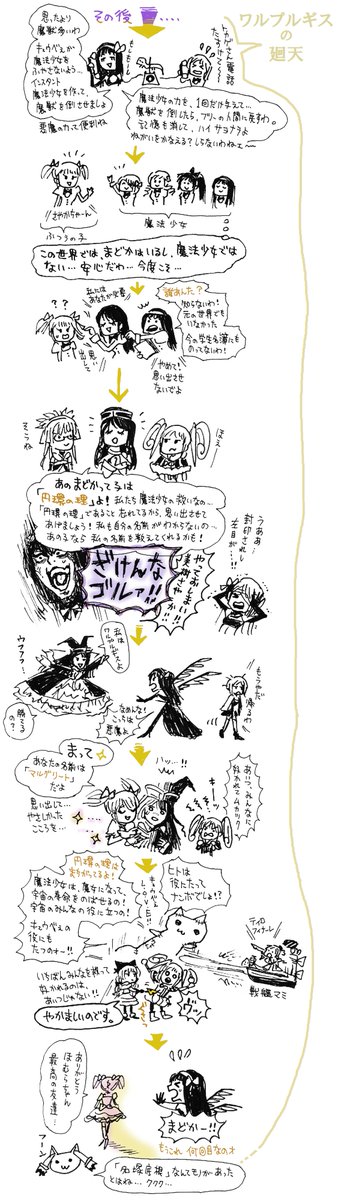 その後
ワルプルギス
の
廻天
思ったより
魔獣多いわ
キュウべえが
魔法少女を
ふやさないよう…
インスタント
魔法少女を作って、
魔獣を倒させましょ
悪魔の力って便利ね
もしもーし
トカゲさん電話
たすけて〜
魔法の力を、1回だけ与えて…
魔獣を倒したら、フツーの人間に戻すわ。
記憶も消して、ハイサヨナラよ
ねがいをかなえる？しらないわねェ〜
さやかちゃーん
ふつうの子
魔法少女
この世界では、まどかはいるし、魔法少女では
ない…安心だわ…今度こそ…
？？
私たちには
あなたが必要
思い出して
誰あんた？
知らないわ！
元の世界でも
いなかった
今の学生名簿にも
のってないわ！
やめて！
思い出させ
ないでよ
そうね
ほえ〜
あのまどかって子は
「円環の理」よ！私たち魔法少女の救いなの…
「円環の理」であること忘れてるから、思い出させて
あげましょう！私も自分の名前がわからないの…
あの子なら私の名前を教えてくれるかも！
ざけんな
ゴルァ!!
やっておしまい!
美樹さやか!!
うああ…
封印されし
左目が
ウフフフ…
私は
ワルプルギスよ
勝てる
の？
なめんな！
こっちは
悪魔よ
もうやだ
帰るわ
まって
あなたの名前は
「マルグリート」
だよ
思い出して…
やさしかった
こころを…
ハッ…!!
あいつ、みんなに
救われてムカツク！
円環の理は
まちがってるよ！
魔法少女は、魔女になって、
宇宙の寿命をのばせるの！
宇宙のみんなの役に立つの！
キュウべえの
役にも
たつのォー!!
ヒトは
役にたって
ナンボでしょ!?
いちばんみんなを想って
救われてるのは、
あいつじゃない!!
やかましいのです。
ティロ
フィナーレ
戦艦マミ
ありがとう
ほむらちゃん
最高の友達…
まどかー!!
もうこれ何回目なのォ
フーン
なんてモノがあった
とはね…ククク…